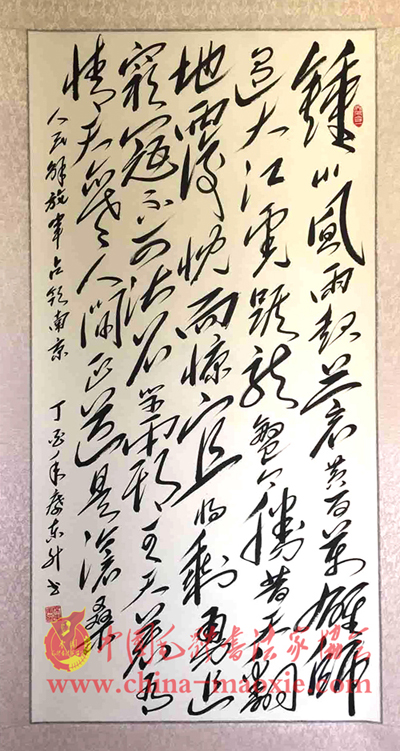 鍾山風雨起蒼黃百萬雄師
過大江虎踞龍盤今勝昔天翻
地覆慨而慷宜將剩勇追
窮寇不可沽名學霸王天若有
情天亦老人間正道是滄桑
人民解放軍占領南京 丁酉年廖东升书
中国毛体书法家协会
www.china-maoxie.com